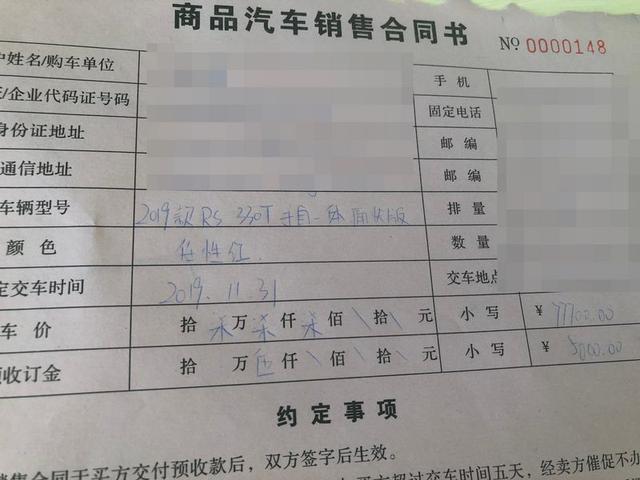 商品汽车销售合同书
No 0000148
户姓名/购车单位
手机
证/企业代码证号码
固定电话
身份证地址
邮编
通信地址
邮编
车辆型号 2019款 RS 330T 手自一体
排量
颜色
数量
定交车时间 2019.11.31
交车地点
车价 拾 万 仟 佰 拾 元 小写 ¥ 77700.00
预收订金 拾 万 伍 仟 \ 佰 \ 拾 \ 元 小写 ¥ 5000.00
约定事项
销售合同于买方交付预收款后，双方签字后生效。
买方超过交车时间五天，经卖方催促不办